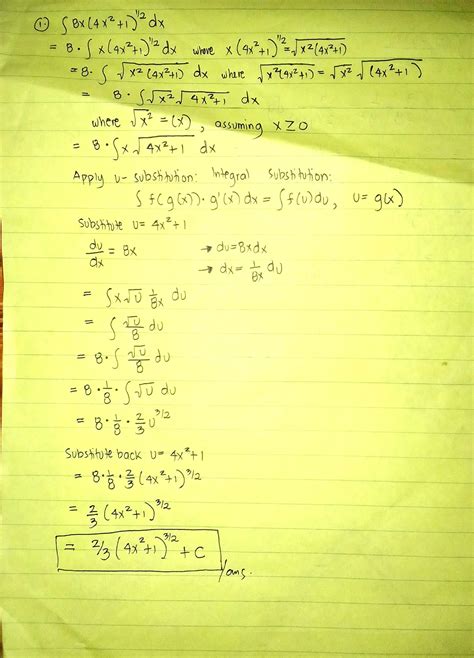 ① ∫ 8x(4x²+1)^1/2 dx
= 8 · ∫ x(4x²+1)^1/2 dx where x(4x²+1)^1/2 = √x²(4x²+1)
= 8 · ∫ √x²(4x²+1) dx where √x²(4x²+1) = √x² √(4x²+1)
= 8 · ∫ √x² √4x²+1 dx
where √x² = (x), assuming x ≥ 0
= 8 · ∫ x √4x²+1 dx
Apply u-substitution: Integral Substitution:
∫ f(g(x)) · g'(x) dx = ∫ f(u) du, u = g(x)
Substitute u = 4x²+1
du/dx = 8x → du = 8xdx
→ dx = 1/8x du
= ∫ x √u 1/8x du
= ∫ √u/8 du
= 8 · ∫ √u/8 du
= 8 · 1/8 · ∫ √u du
= 8 · 1/8 · 2/3 u^3/2
Substitute back u = 4x²+1
= 8 · 1/8 · 2/3 (4x²+1)^3/2
= 2/3 (4x²+1)^3/2
= 2/3 (4x²+1)^3/2 + C
/ans.